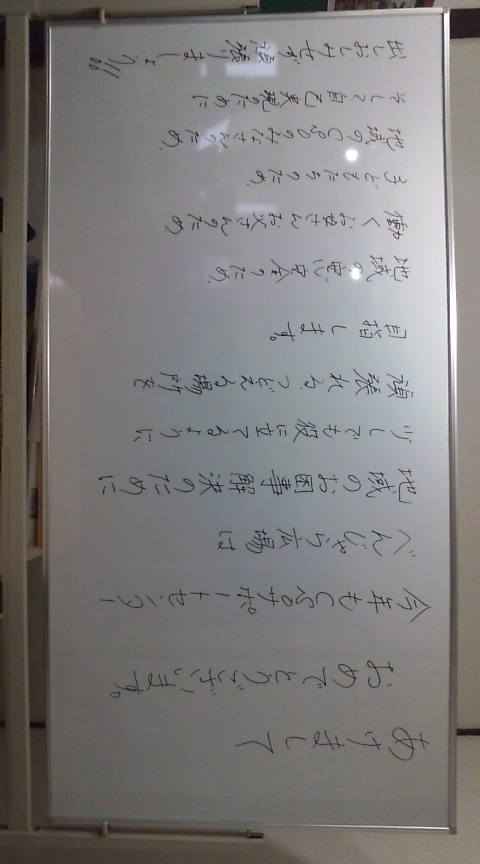 あけまして
おめでとうございます。
今年もサポートセンター
べんじゃら広場は
地域のお困事解決のために
少しでも役に立てるように
頑張れる、つどえる場所を
目指します。
地域の安心安全のため、
働くお母さんお父さんのため
子どもたちのため、
地域のみなさんのため、
そして自己実現のために
出しおしみせず頑張りましょう!!